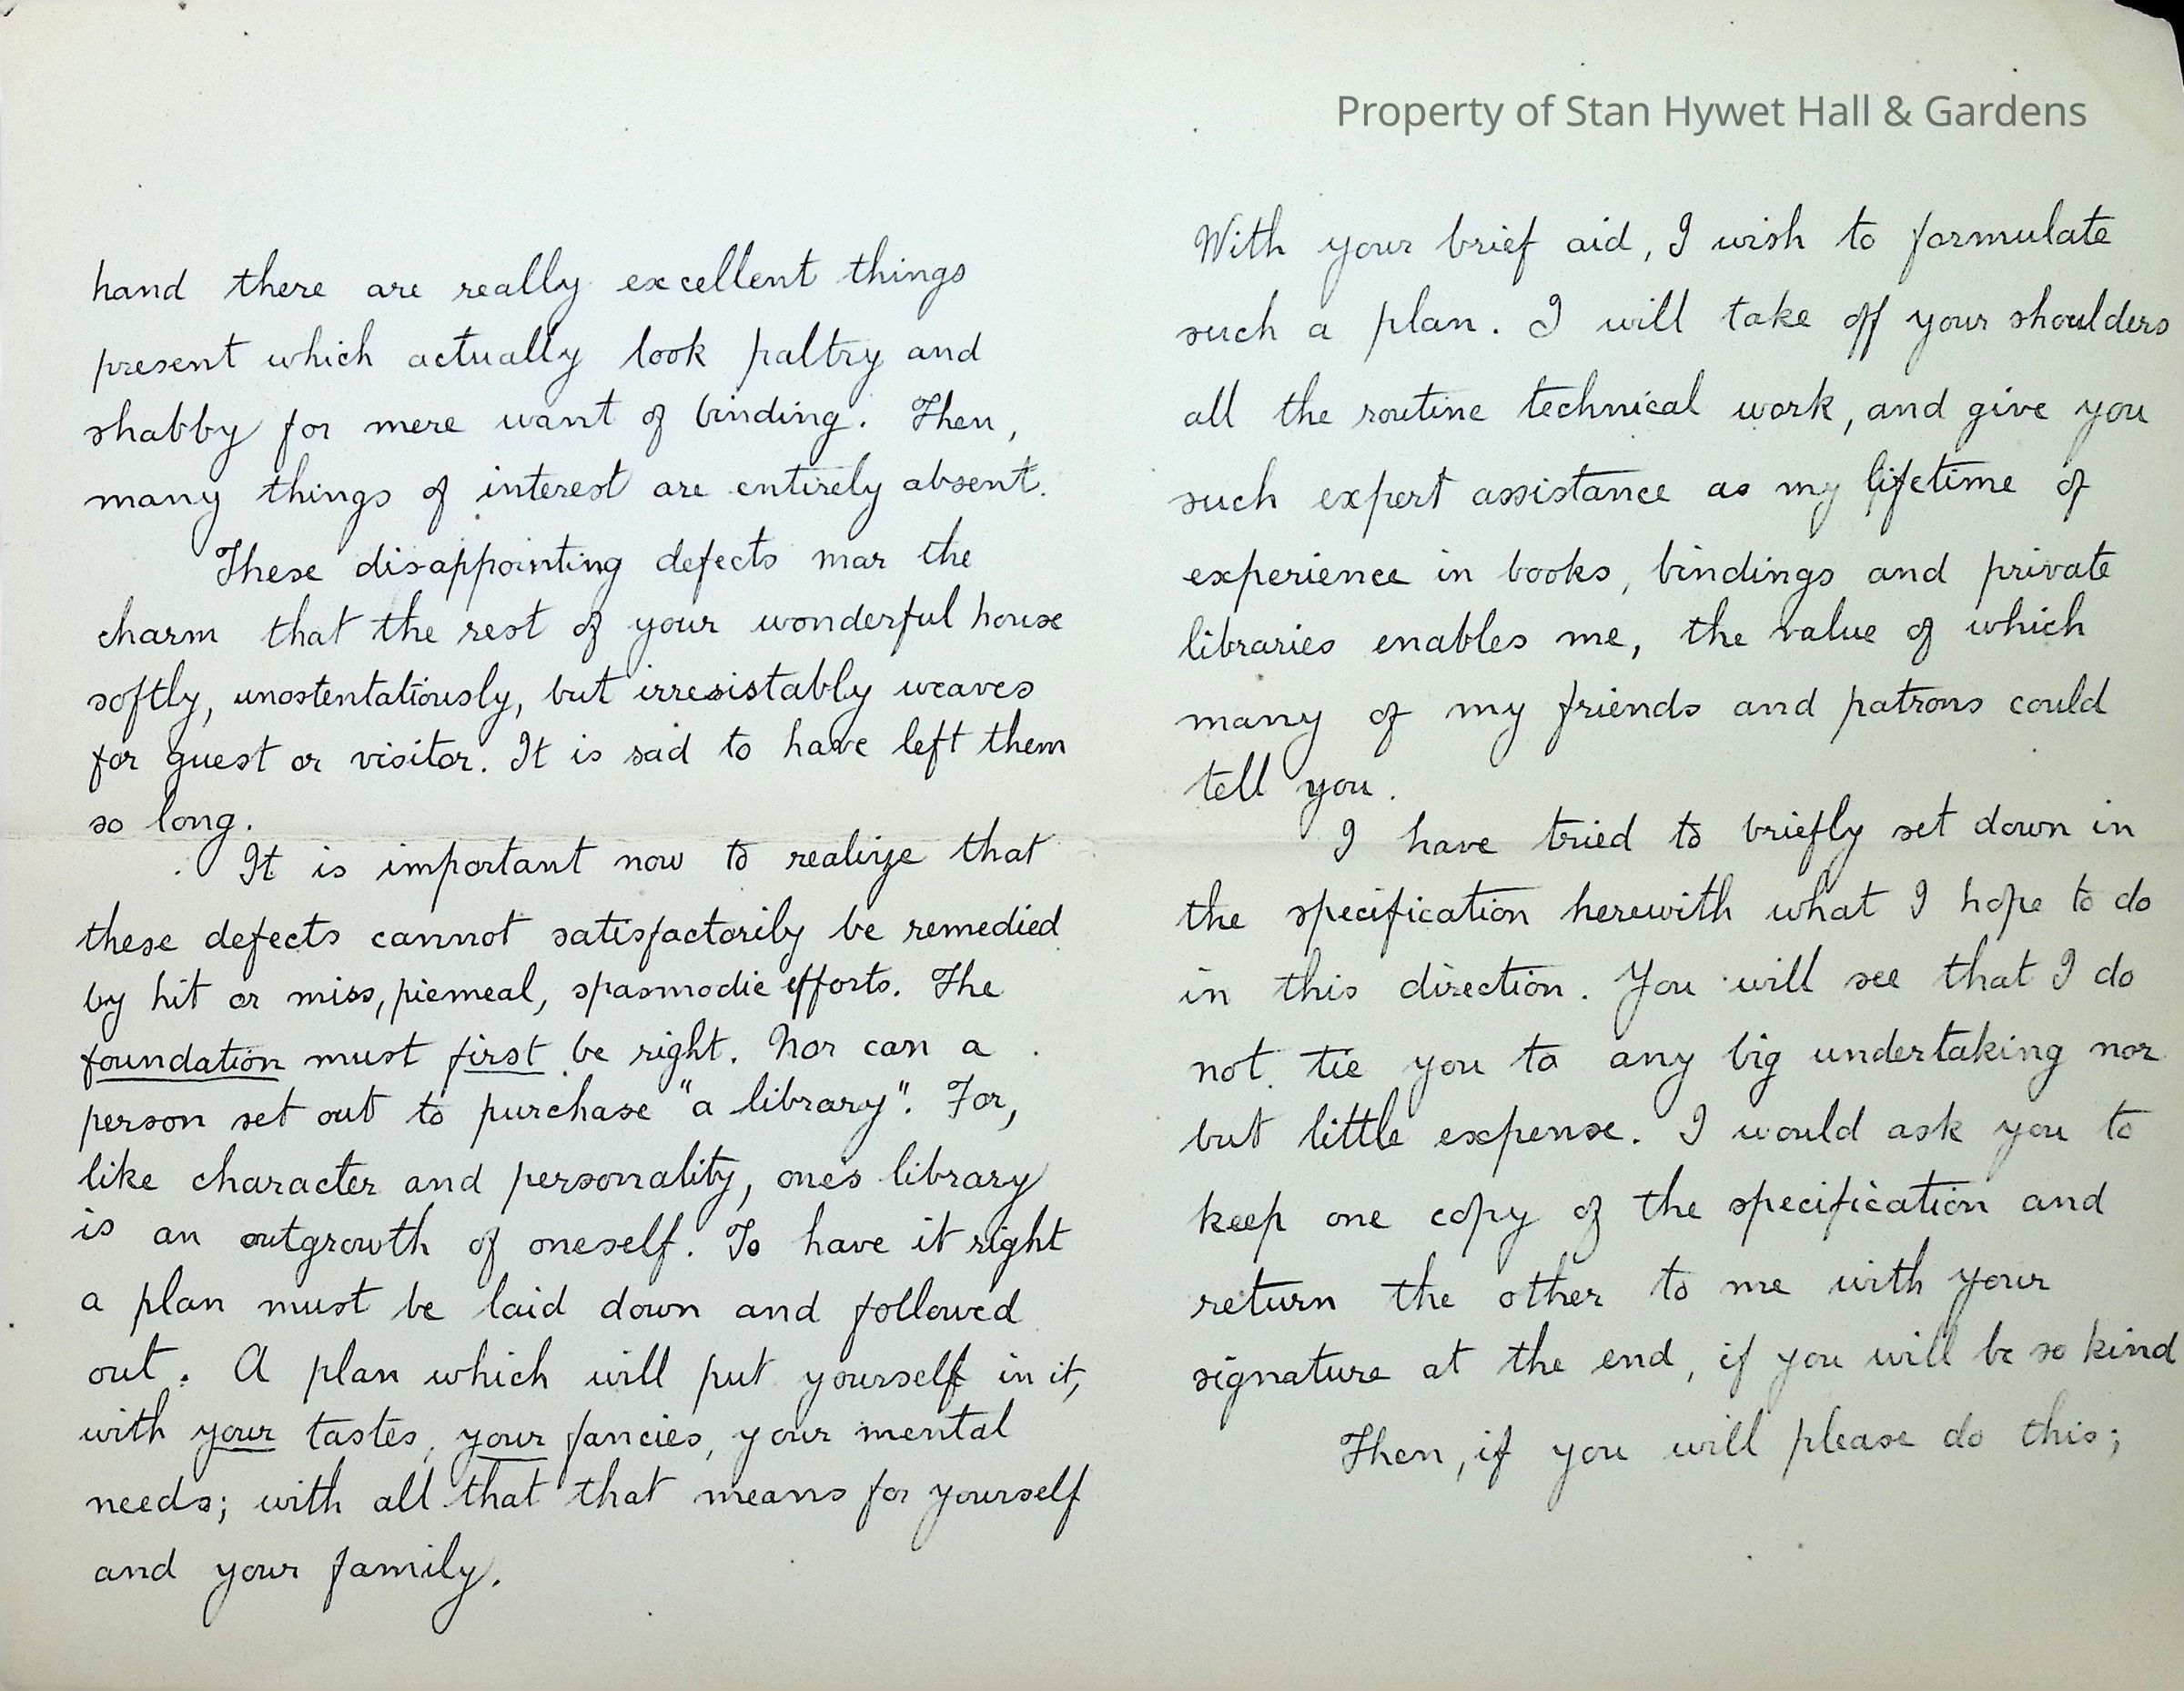 Property of Stan Hywet Hall & Gardens
hand there are really excellent things
present which actually look paltry and
shabby for mere want of binding. Then,
many things of interest are entirely absent.
These disappointing defects mar the
charm that the rest of your wonderful house
softly, unostentatiously, but irresistably weaves
for guest or visitor. It is sad to have left them
so long.
It is important now to realize that
these defects cannot satisfactorily be remedied
by hit or miss, piemeal, spasmodic efforts. The
foundation must first be right. Nor can a
person set out to purchase "a library". For,
like character and personality, ones library
is an outgrowth of oneself. To have it right
a plan must be laid down and followed
out. A plan which will put yourself in it,
with your tastes, your fancies, your mental
needs; with all that that means for yourself
and your family.
With your brief aid, I wish to formulate
such a plan. I will take off your shoulders
all the routine technical work, and give you
such expert assistance as my lifetime of
experience in books, bindings and private
libraries enables me, the value of which
many of my friends and patrons could
tell you.
I have tried to briefly set down in
the specification herewith what I hope to do
in this direction. You will see that I do
not tie you to any big undertaking nor
but little expense. I would ask you to
keep one copy of the specification and
return the other to me with your
signature at the end, if you will be so kind
Then, if you will please do this;